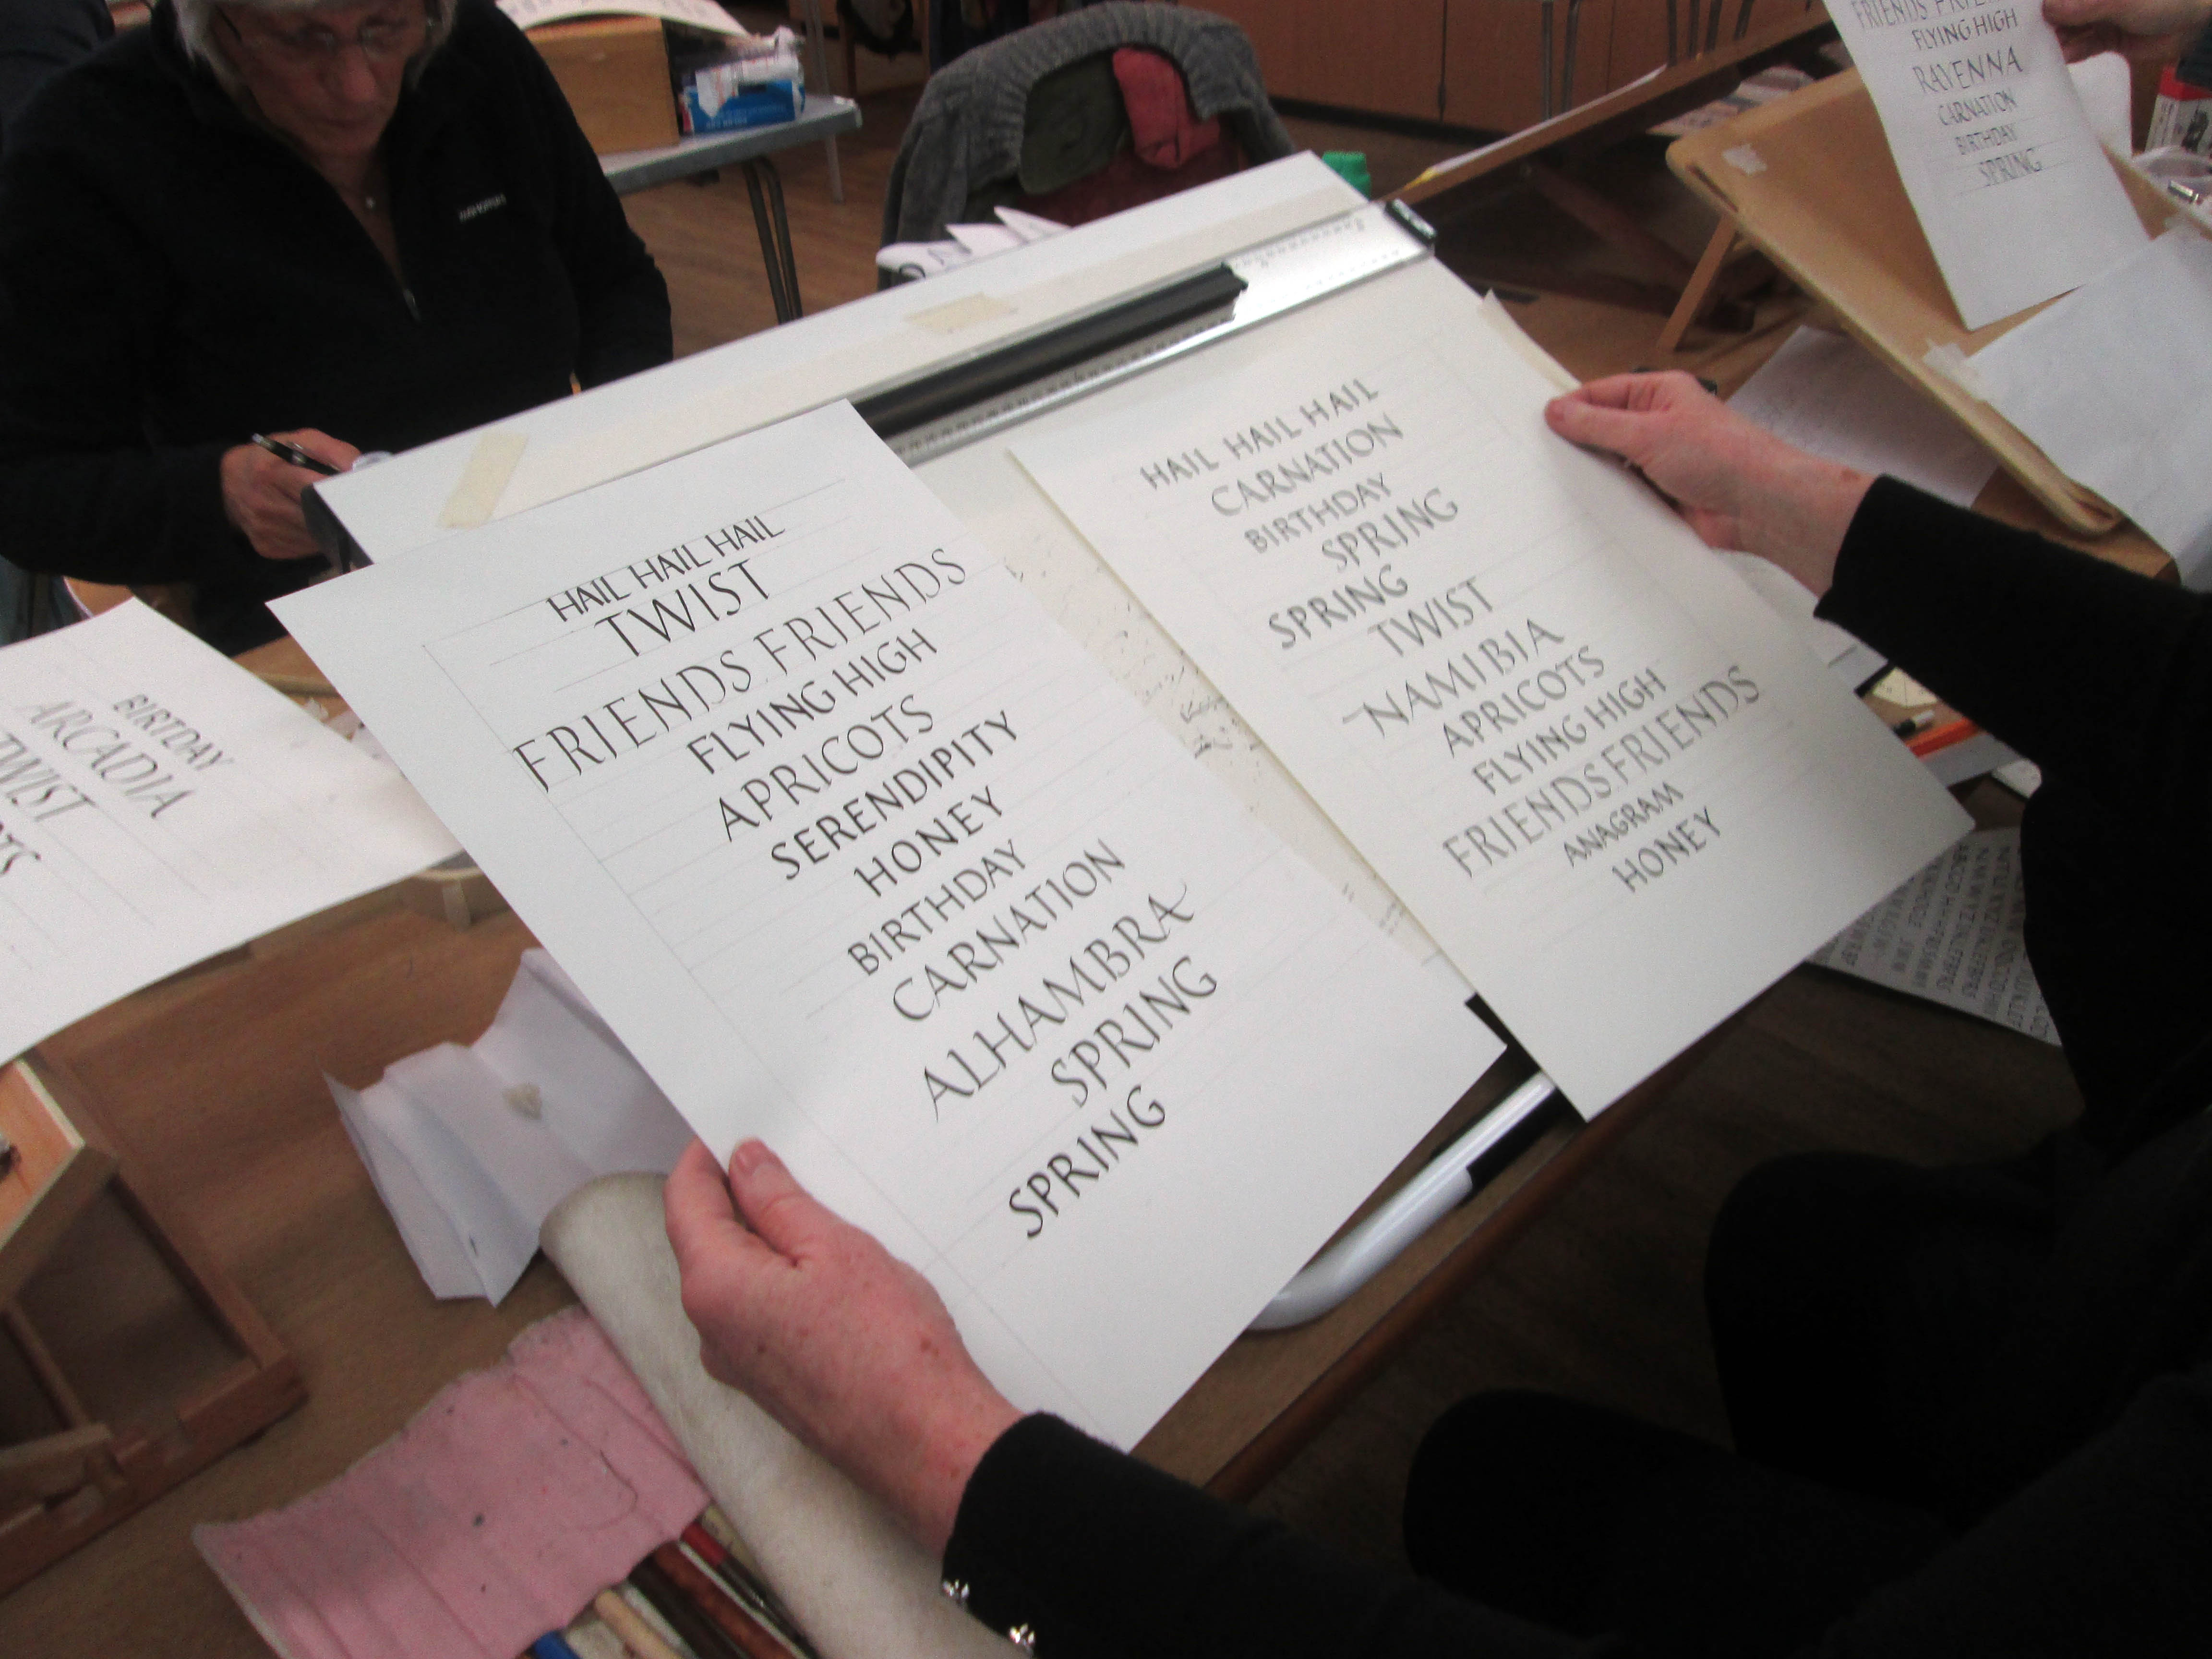 HAIL HAIL HAIL
TWIST
FRIENDS FRIENDS
FLYING HIGH
APRICOTS
SERENDIPITY
HONEY
BIRTHDAY
CARNATION
ALHAMBRA
SPRING
SPRING
HAIL HAIL HAIL
CARNATION
BIRTHDAY
SPRING
SPRING
TWIST
NAMIBIA
APRICOTS
FLYING HIGH
FRIENDS FRIENDS
ANAGRAM
HONEY
BIRTDAY
ARCADIA
TWIST
FRIENDS
FLYING HIGH
RAVENNA
CARNATION
BIRTHDAY
SPRING